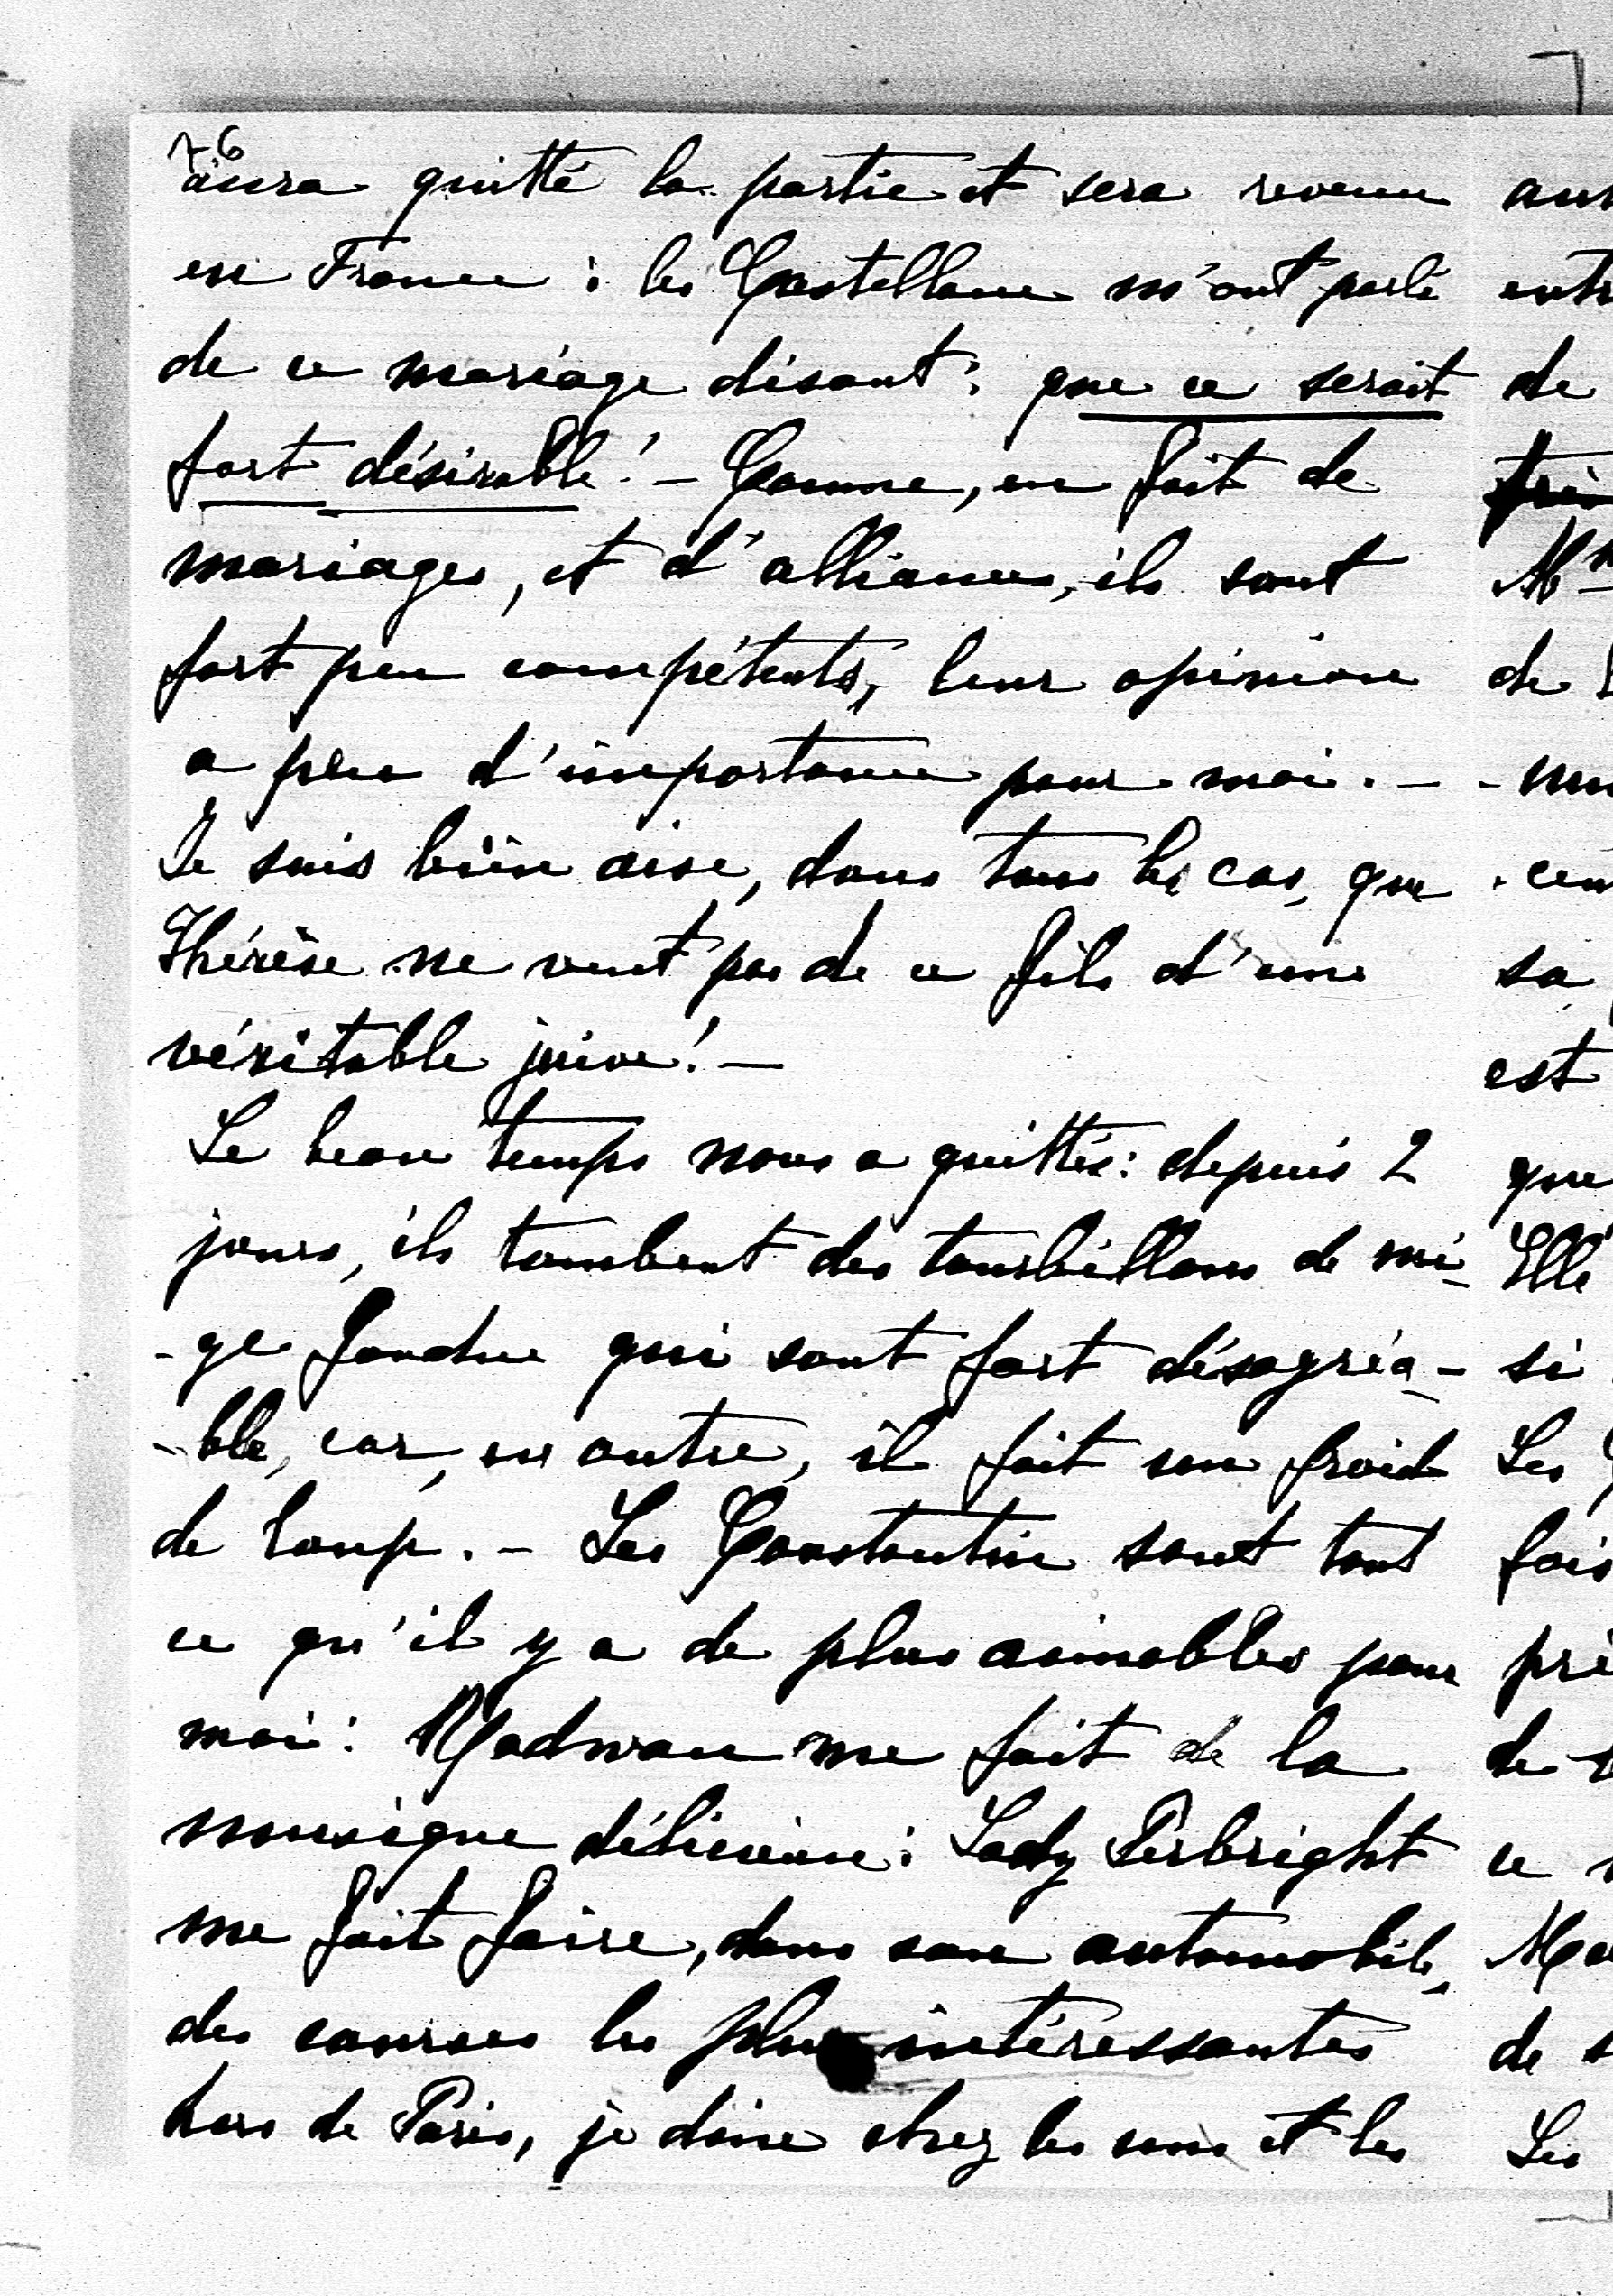 76
aura quitté la partie et sera revenu
en France : les Castellane m'ont parlé
de ce mariage disant : que ce serait
fort désirable ! – Comme, en fait de
mariages, et d'alliances, ils sont
fort peu compétents, leur opinion
a peu d'importance pour moi. –
Je suis bien aise, dans tous les cas, que
Thérèse ne veut pas de ce fils d'une
véritable juive ! –
Le beau temps nous a quittés : depuis 2
jours, ils tombent des tourbillons de nei-
-ge fondue qui sont fort désagréa-
-ble, car, en outre, il fait un froid
de loup. – Les Constantin sont tout
ce qu'il y a de plus aimables pour
moi : Radwan me fait de la
musique délicieuse : Lady Pirbright
me fait faire, dans son automobile,
des courses les plus intéressantes
hors de Paris, je dine chez les uns et les
de
Mm
de
sa
est
que
Elle
si
Les
fois
de
ce
de
Les